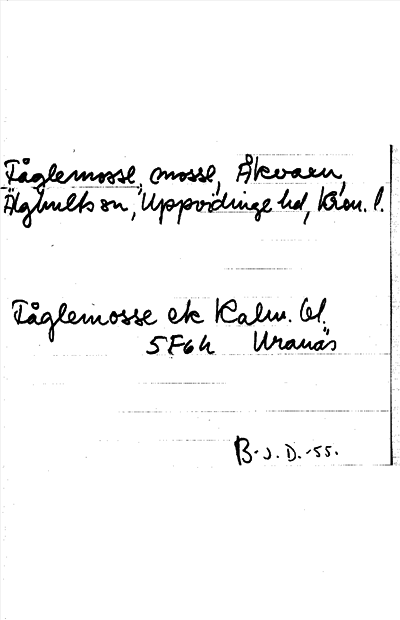 Fåglemosse, mosse, Åkvarn,
Älghults sn, Uppvidinge hd, Kron. l.
Fåglemosse ek Kalm. bl.
5F6h Uranäs
B-J.D.-55.